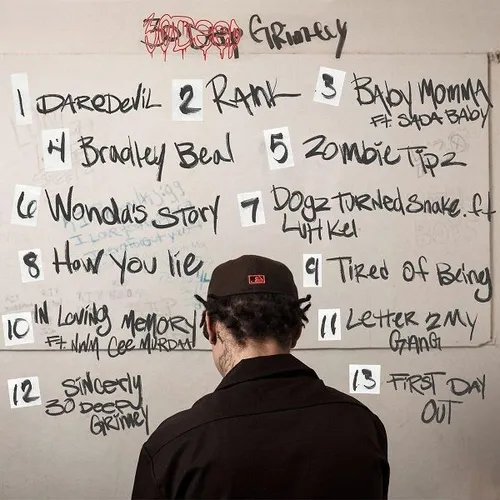 Grimey
1 DAREDEVIL
2 RANK
3 BABY MOMMA
Ft. SADA BABY
4 Bradley Beal
5 Zombie Tipz
6 Wonda's Story
7 Dogz TURNED Snake. ft
LUH Kel
8 How You lie
9 TiRed Of Being
10 IN Loving MeMORY
Ft NWM Cee MURDAH
11 LeTTeR 2 My
GANG
12 SiNCeRly
30 DEEP
GRimey
13 FIRST DAY
OUT